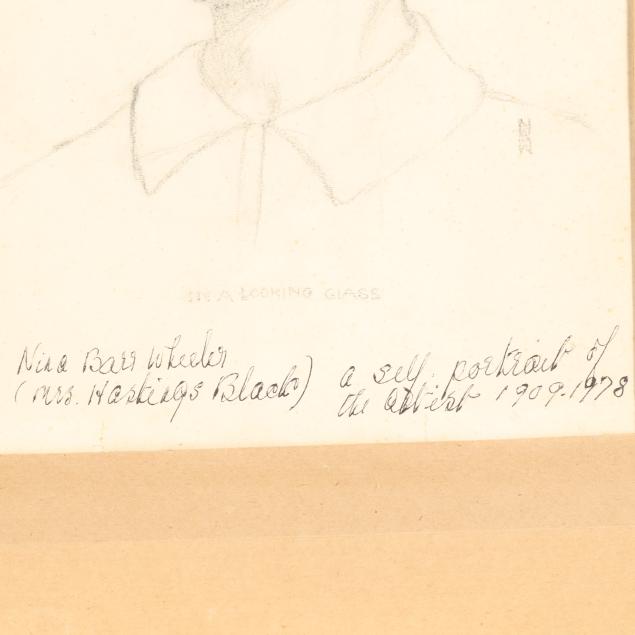 IN A LOOKING GLASS
Nina Barr Wheeler
(Mrs. Hastings Black)
a self portrait of
the artist 1909-1978